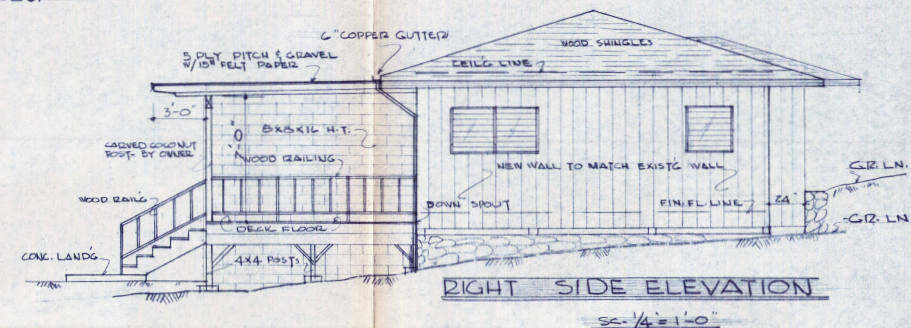 6" COPPER GUTTER
5 PLY PITCH & GRAVEL
W/15# FELT PAPER
WOOD SHINGLES
CEIL'G LINE
3'-0"
8X8X16 H.T.
CARVED COCONUT
POST- BY OWNER
WOOD RAILING
NEW WALL TO MATCH EXIST'G WALL
GR. LN.
WOOD RAIL'G
DOWN SPOUT
FIN. FL. LINE
24"
GR. LN
DECK FLOOR
CONC. LAND'G
4X4 POSTS
RIGHT SIDE ELEVATION
SC- 1/4" = 1'-0"